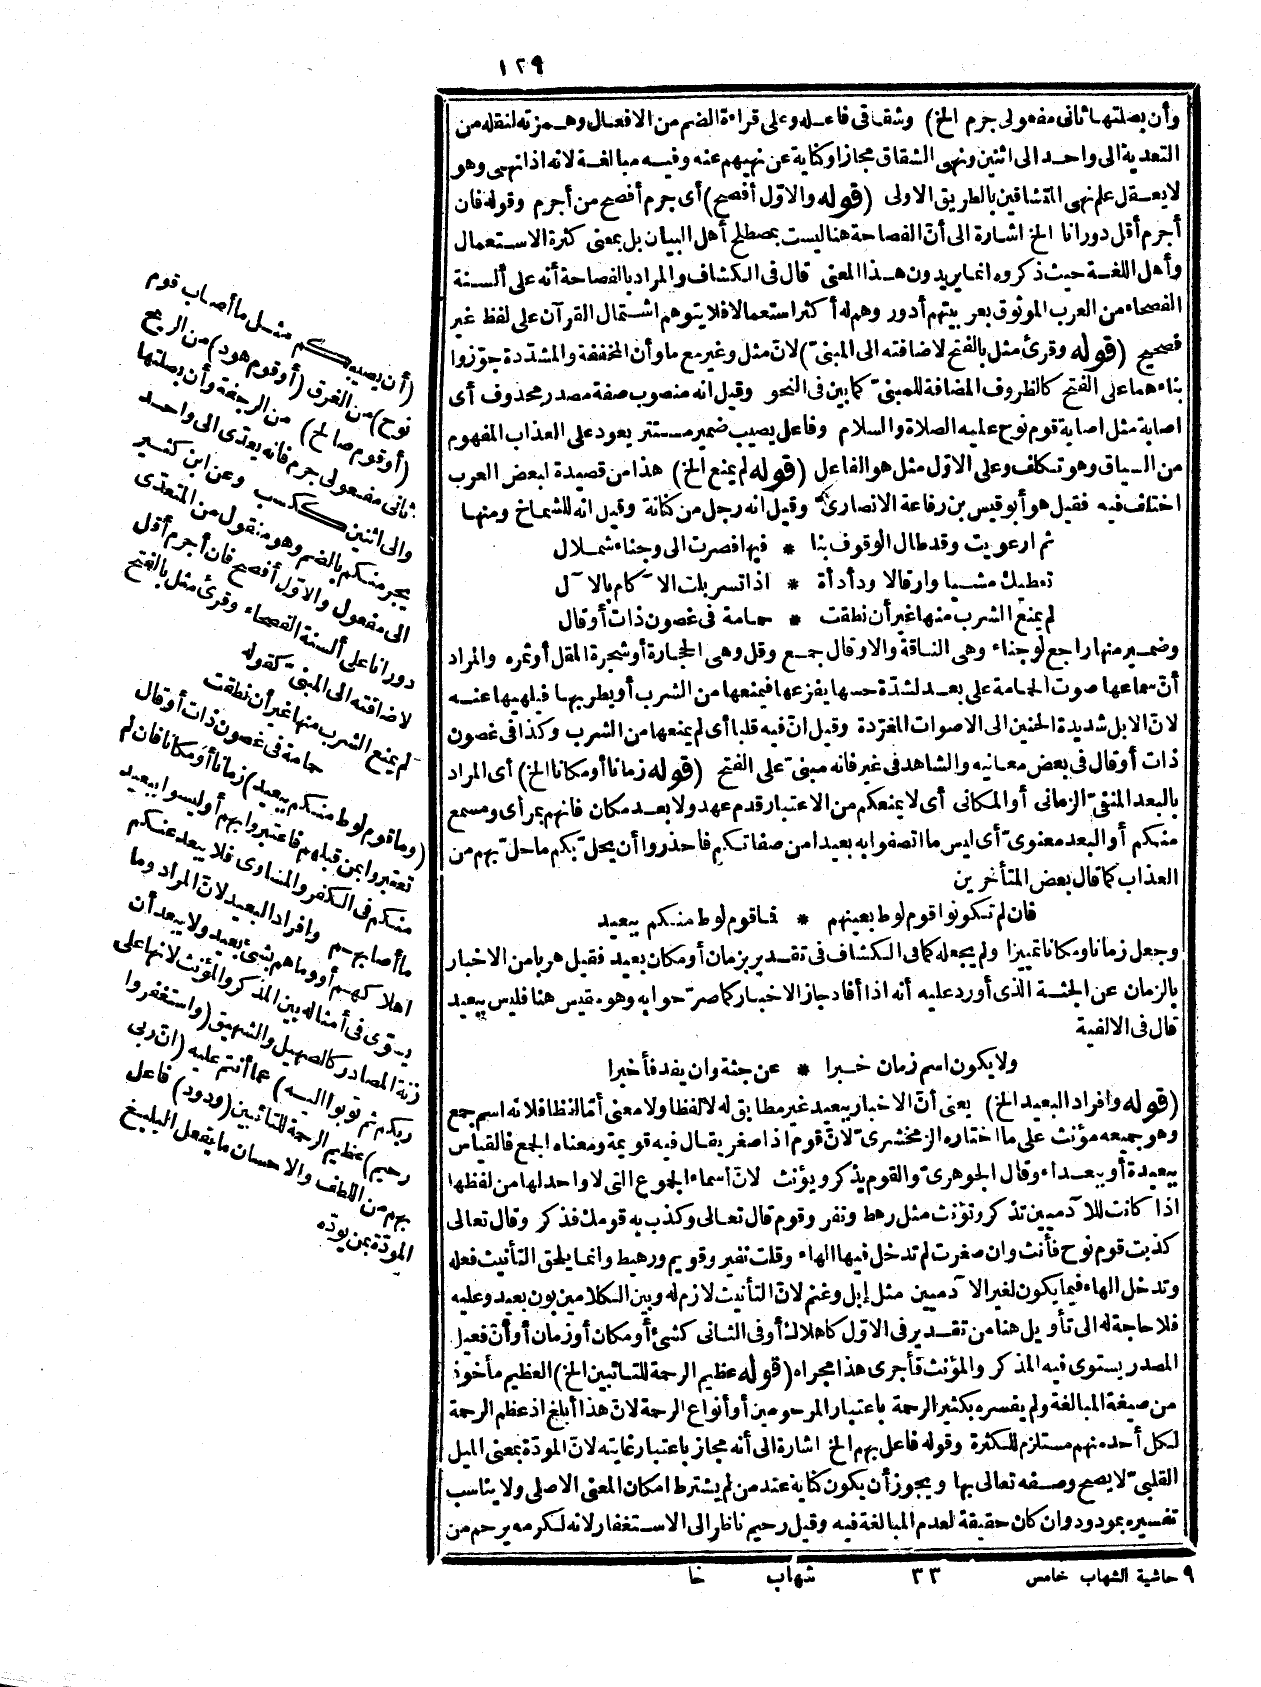 ١٢٩
وأن بصلتها ثانى مفعولى جرم الخ) وشقاقى فاعله وعلى قراءة الضم من الافعال وهمزته لنقله من
التعدية الى واحد الى اثنين ونهى الشقاق مجاز أوكناية عن نهيهم عنه وفيه مبالغة لانه اذا نهى وهو
لا يعقل علم نهى المتشاقين بالطريق الاولى (قوله والاوّل أفصح) أى جرم أفصح من أجرم وقوله فان
أجرم أقل دورانا الخ اشارة الى أنّ الفصاحة هنا ليست بمصطلح أهل البيان بل بمعنى كثرة الاستعمال
وأهل اللغة حيث ذكروه انما يريدون هذا المعنى قال فى الكشاف والمراد بالفصاحة أنه على ألسنة
الفصحاء من العرب الموثوق بعربيتهم أدور وهم له أكثر استعمالا فلا يتوهم اشتمال القرآن على لفظ غير
فصيح (قوله وقرئ مثل بالفتح لاضافته الى المبنى) لانّ مثل وغير مع ما وأن المخففة والمشدّدة جوّزوا
بناءهما على الفتح كالظروف المضافة للمبنىّ كما بين فى النحو وقيل انه منصوب صفة مصدر محذوف أى
اصابة مثل اصابة قوم نوح عليه الصلاة والسلام وفاعل يصيب ضمير مستتر يعود على العذاب المفهوم
من السياق وهو تكلف وعلى الاوّل مثل هو الفاعل (قوله لم يمنع الخ) هذا من قصيدة لبعض العرب
اختلف فيه فقيل هو أبو قيس بن رفاعة الانصارىّ وقيل انه رجل من كنانة وقيل انه للشماخ ومنها
ثم ارعويت وقد طال الوقوف بنا * فيها فصرت الى وجناء شملال
تعطيك مشيا وارقالا ودأدأة * اذا تسربلت الآكام بالآل
لم يمنع الشرب منها غير أن نطقت * حمامة فى غصون ذات أوقال
وضمير منها راجع لوجناء وهى الناقة والاوقال جمع وقل وهى الحجارة أو شجرة المقل أوثمره والمراد
أنّ سماعها صوت الحمامة على بعد لشدّة حسها يفزعها فيمنعها من الشرب أو يطربها فيلهيها عنه
لانّ الابل شديدة الحنين الى الاصوات المغرّدة وقيل انّ فيه قلبا أى لم يمنعها من الشرب وكذا فى غصون
ذات أوقال فى بعض معانيه والشاهد فى غير فانه مبنىّ على الفتح (قوله زمانا أو مكانا الخ) أى المراد
بالبعد المنفىّ الزمانى أو المكانى أى لا يمنعكم من الاعتبار قدم عهد ولا بعد مكان فانهم بمرأى ومسمع
منكم أو البعد معنوىّ أى ليس ما اتصفوا به بعيدا من صفاتكم فاحذروا أن يحلّ بكم ما حلّ بهم من
العذاب كما قال بعض المتأخرين
فان لم تكونوا قوم لوط بعينهم * فما قوم لوط منكم ببعيد
وجعل زمانا ومكانا تمييزا ولم يجعله كما فى الكشاف فى تقدير بزمان أو مكان بعيد فقيل هربا من الاخبار
بالزمان عن الجثة الذى أورد عليه أنه اذا أفاد جاز الاخبار كما صرّحوا به وهو مقيس هنا فليس ببعيد
قال فى الالفية
ولا يكون اسم زمان خبرا * عن جثة وان يفد فأخبرا
(قوله وافراد البعيد الخ) يعنى أنّ الاخبار ببعيد غير مطابق له لا لفظا ولا معنى أمّا لفظا فلانه اسم جمع
وهو جميعه مؤنث على ما اختاره الزمخشرىّ لانّ قوم اذا صغر يقال فيه قويمة ومعناه الجمع فالقياس
ببعيدة أو ببعداء وقال الجوهرىّ والقوم يذكر ويؤنث لانّ أسماء الجموع التى لا واحد لها من لفظها
اذا كانت للآدميين تذكر وتؤنث مثل رهط ونفر وقوم قال تعالى وكذب به قومك فذكر وقال تعالى
كذبت قوم نوح فأنث وان صغرت لم تدخل فيها الهاء وقلت نفير وقويم ورهيط وانما يلحق التأنيث فعله
وتدخل الهاء فيما يكون لغير الآدميين مثل إبل وغنم لانّ التأنيث لازم له وبين الكلامين بون بعيد وعليه
فلا حاجة له الى تأويل هنا من تقدير فى الاوّل كاهلاك أو فى الثانى كشئ أو مكان أو زمان أو أنّ فعيل
المصدر يستوى فيه المذكر والمؤنث فأجرى هذا مجراه (قوله عظيم الرحمة للتائبين الخ) العظيم مأخوذ
من صيغة المبالغة ولم يفسره بكثير الرحمة باعتبار المرحومين أو أنواع الرحمة لانّ هذا أبلغ اذ عظم الرحمة
لكل أحد منهم مستلزم للكثرة وقوله فاعل بهم الخ اشارة الى أنه مجاز باعتبار غايته لانّ المودّة بمعنى الميل
القلبىّ لا يصح وصفه تعالى بها ويجوز أن يكون كناية عند من لم يشترط امكان المعنى الاصلى ولا يناسب
تفسيره بمودود وان كان حقيقة لعدم المبالغة فيه وقيل رحيم ناظر الى الاستغفار لانه لكرمه يرحم من
(أن يصيبكم مثل ما أصاب قوم
نوح) من الغرق (أو قوم هود) من الريح
(أو قوم صالح) من الرجفة وأن بصلتها
ثانى مفعولى جرم فانه يعدّى الى واحد
والى اثنين ككسب وعن ابن كثير
يجرمنكم بالضم وهو منقول من المتعدّى
الى مفعول والاوّل أفصح فان أجرم أقل
دورانا على ألسنة الفصحاء وقرئ مثل بالفتح
لاضافته الى المبنىّ كقوله
لم يمنع الشرب منها غير أن نطقت
حمامة فى غصون ذات أوقال
(وما قوم لوط منكم ببعيد) زمانا أو مكانا فان لم
تعتبروا بمن قبلهم فاعتبروا بهم أو ليسوا ببعيد
منكم فى الكفر والمساوى فلا يبعد عنكم
ما أصابهم وافراد البعيد لانّ المراد وما
اهلاكهم أو وما هم بشئ بعيد ولا يبعد أن
يسوّى فى أمثاله بين المذكر والمؤنث لانها على
زنة المصادر كالصهيل والشهيق (واستغفروا
ربكم ثم توبوا اليه) عما أنتم عليه (انّ ربى
رحيم) عظيم الرحمة للتائبين (ودود) فاعل
بهم من اللطف والاحسان ما يفعل البليغ
المودّة بمن يودّه
٩ حاشية الشهاب خامس ٣٣ شهاب خا